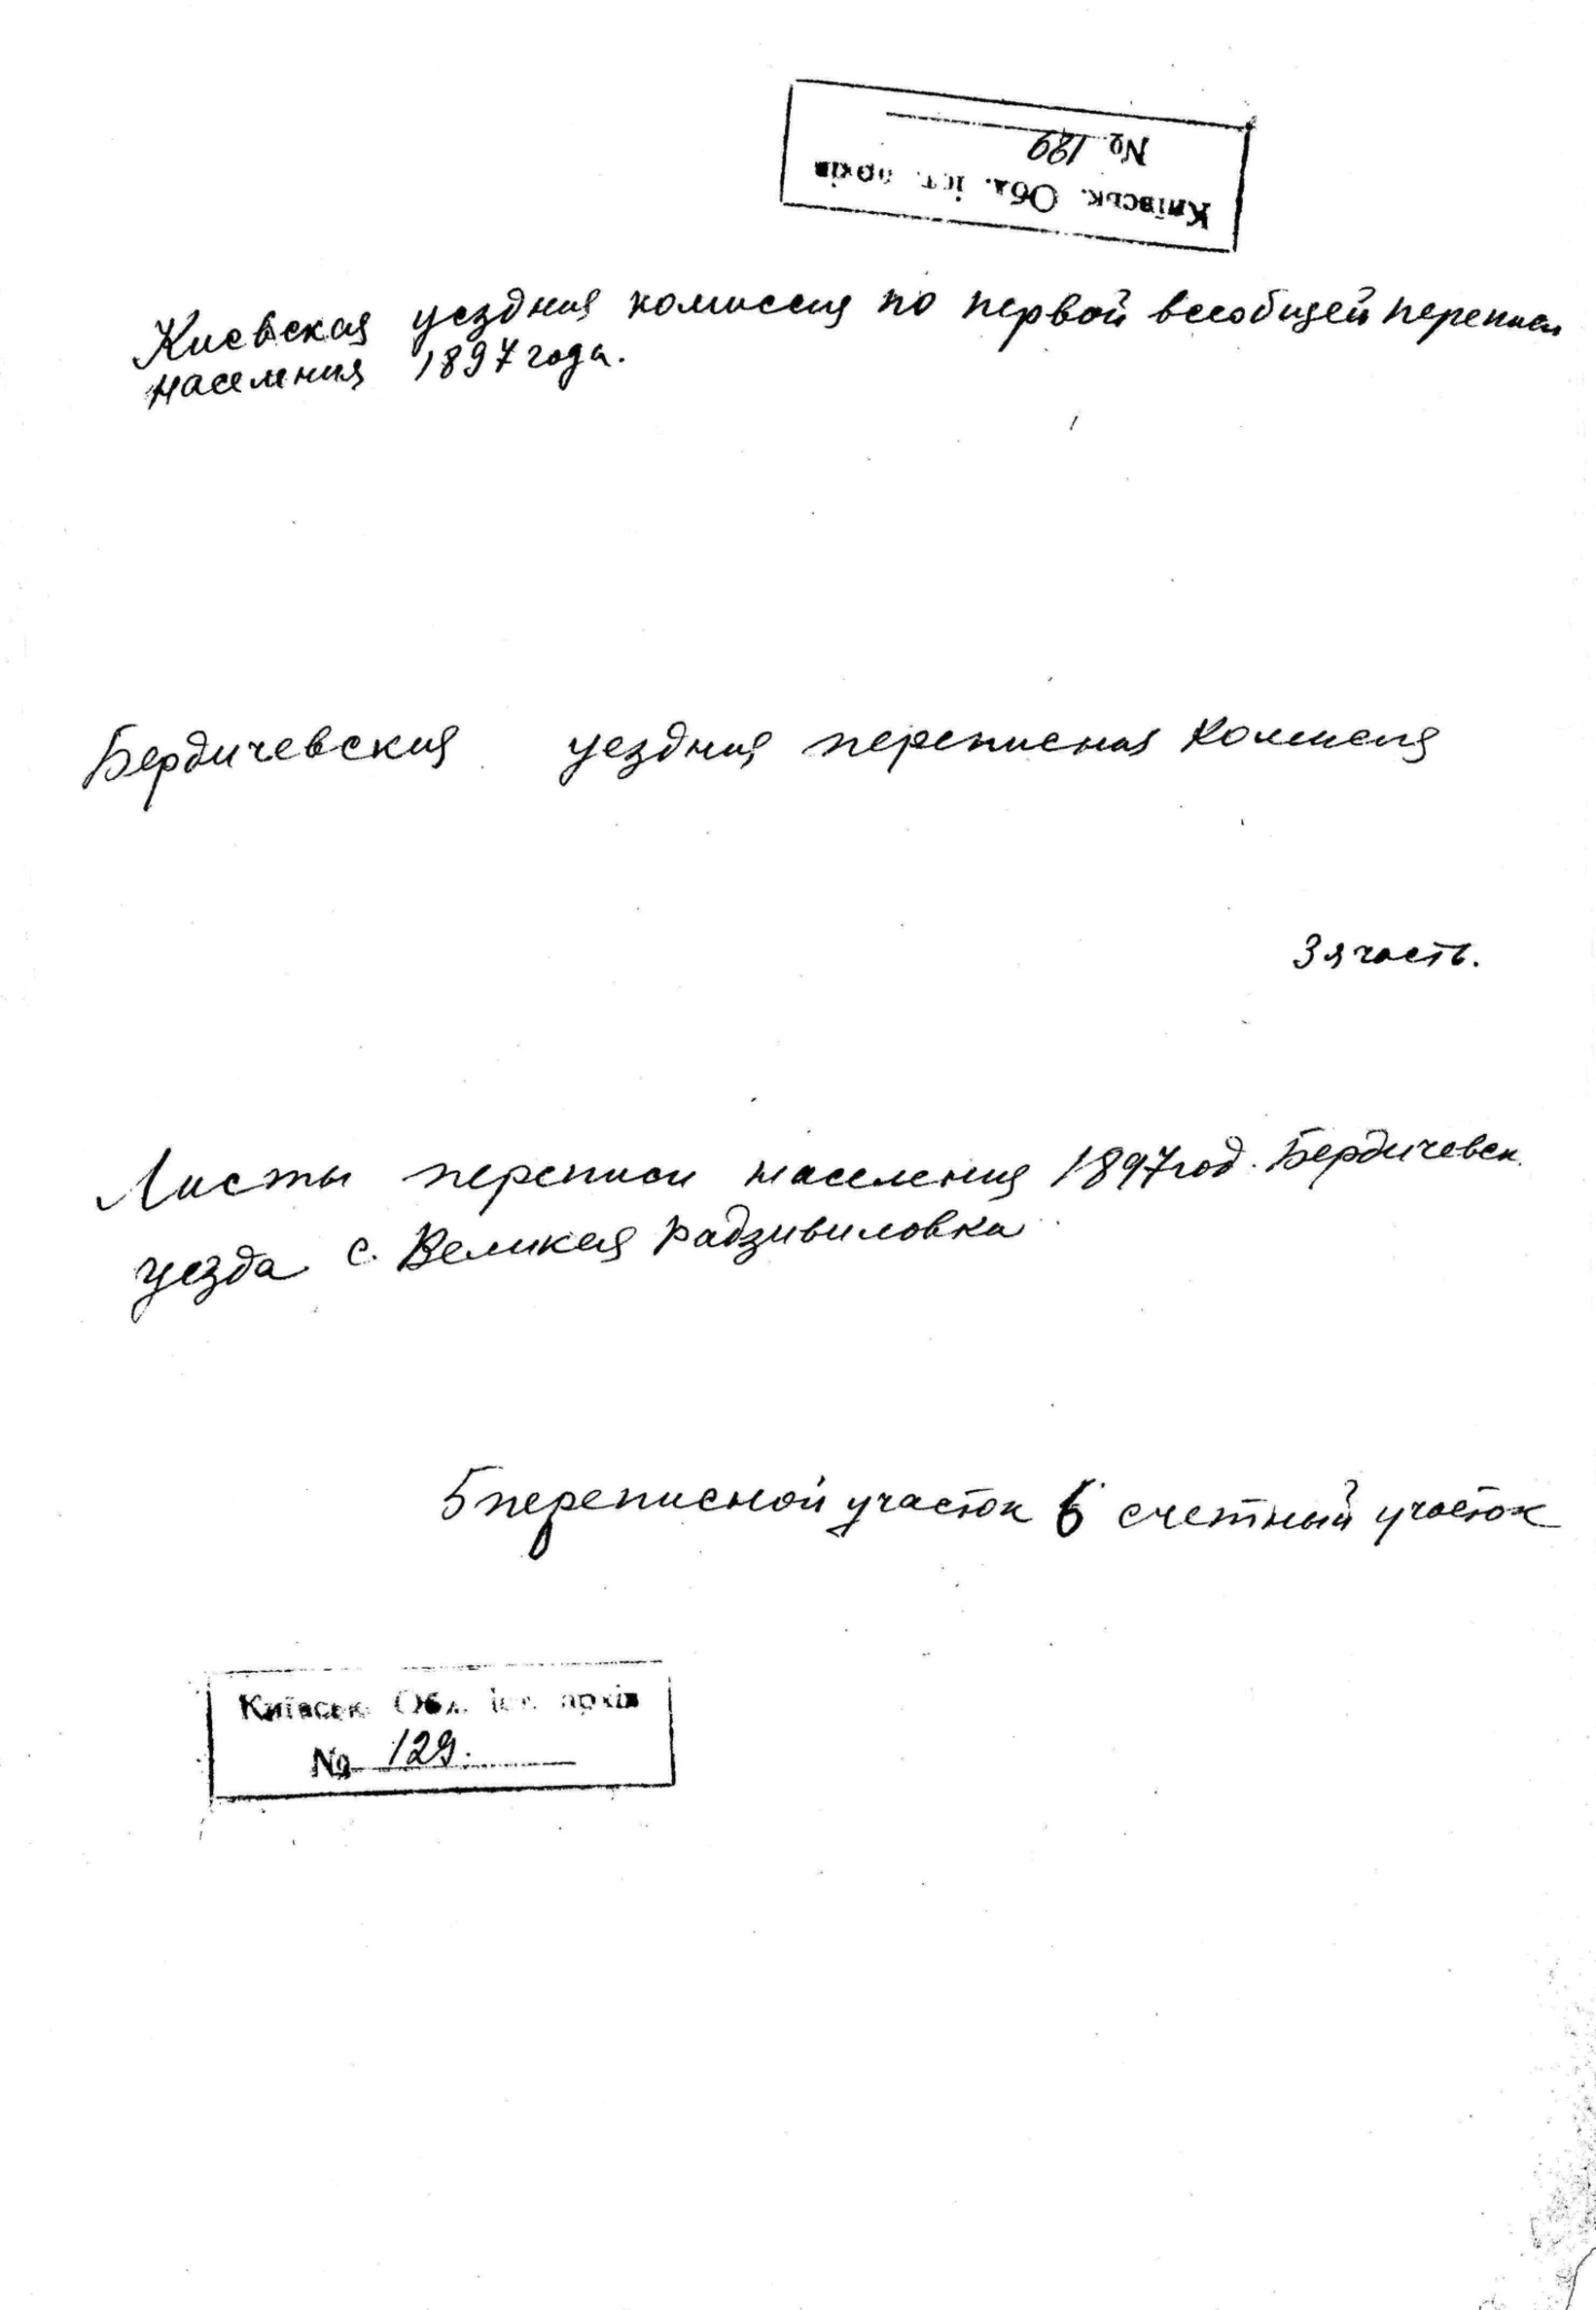 Київськ. Обл. іст. архів
№ 129
Киевская уездная комиссия по первой всеобщей переписи
населения 1897 года.
Бердичевская уездная переписная комиссия
3 я часть.
Листы переписи населения 1897 год. Бердичевск.
уезда с. Великая Радзивиловка
5 переписной участок 6 счетный участок
Київськ. Обл. іст. архів
№ 129.